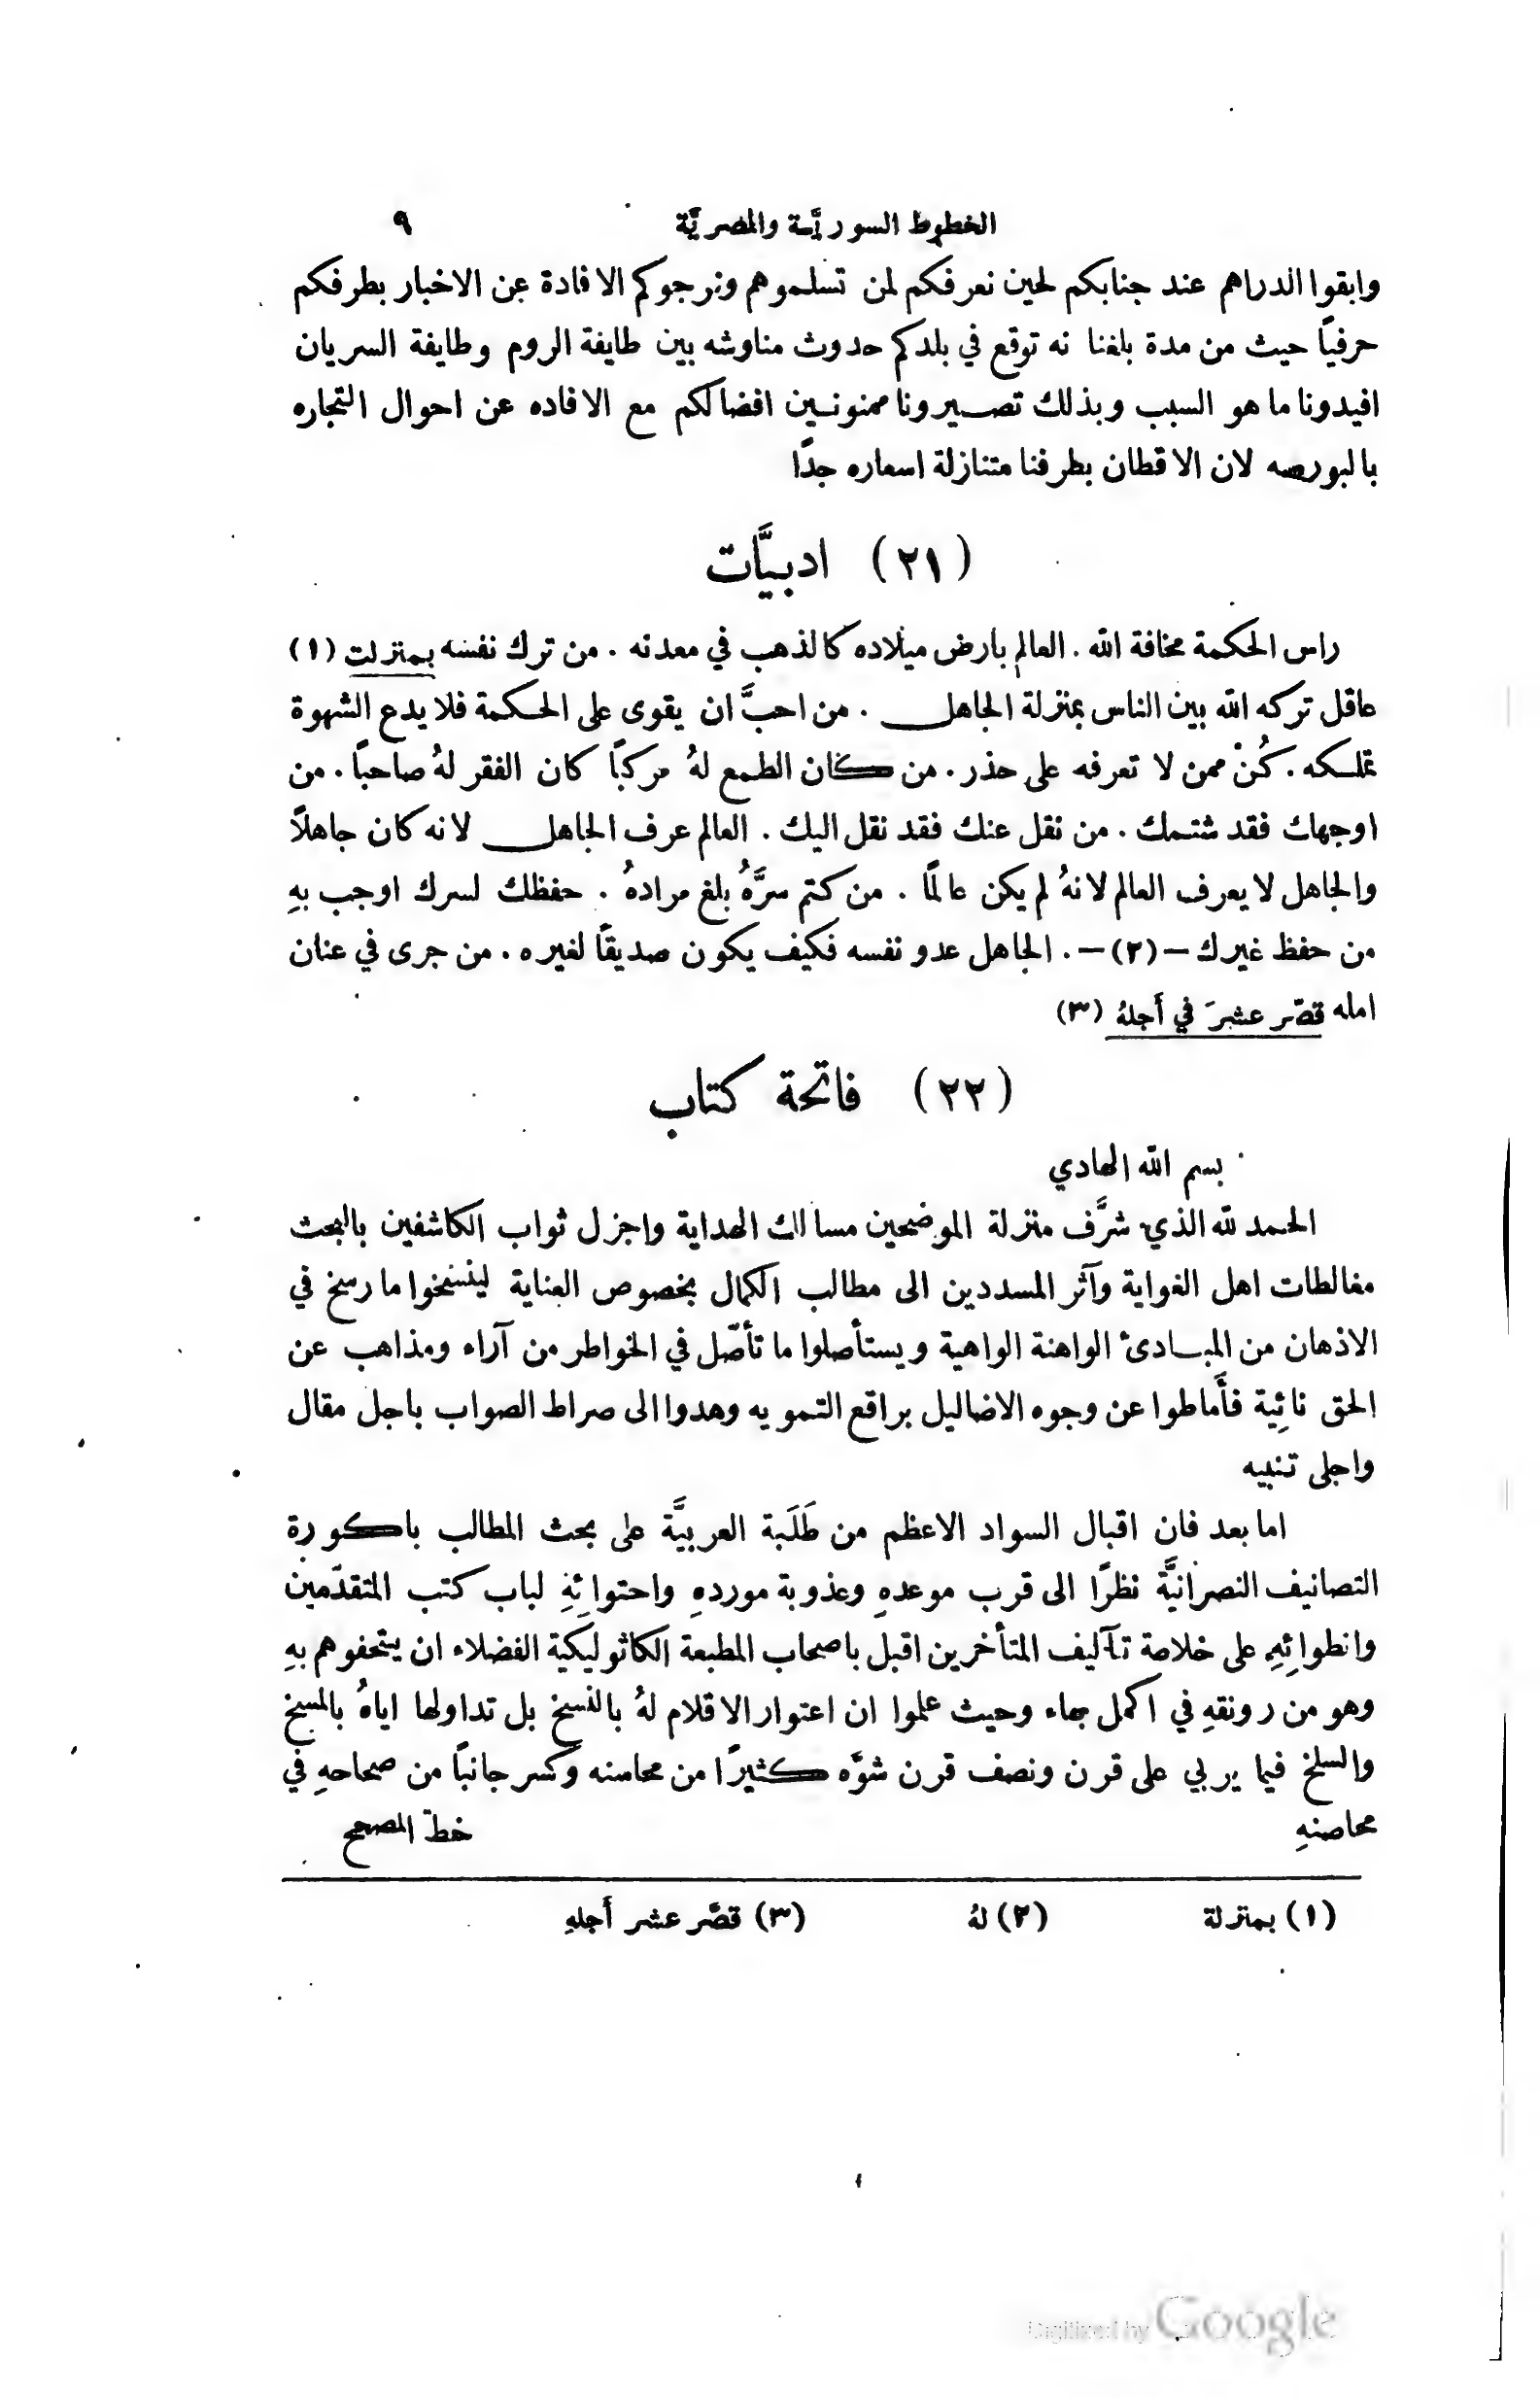 الخطوط السوريَّة والمصريَّة ٩
وابقوا الدراهم عند جنابكم لحين نعرفكم لمن تسلموهم ونرجوكم الافادة عن الاخبار بطرفكم
حرفياً حيث من مدة بلغنا نه توقع في بلدكم حدوث مناوشه بين طايفة الروم وطايفة السريان
افيدونا ما هو السبب وبذلك تصيرونا ممنونين افضالكم مع الافاده عن احوال التجاره
بالبورصه لان الاقطان بطرفنا متنازلة اسعاره جدًا
(٢١) ادبيَّات
راس الحكمة مخافة الله . العالم بارض ميلاده كالذهب في معدنه . من ترك نفسه بمنزلت (١)
عاقل تركه الله بين الناس بمنزلة الجاهل . من احبَّ ان يقوى على الحكمة فلا يدع الشهوة
تملكه . كُنْ ممن لا تعرفه على حذر . من كان الطمع لهُ مركباً كان الفقر لهُ صاحباً . من
اوجهك فقد شتمك . من نقل عنك فقد نقل اليك . العالم عرف الجاهل لانه كان جاهلاً
والجاهل لا يعرف العالم لانهُ لم يكن عالمًا . من كتم سرَّهُ بلغ مرادهُ . حفظك لسرك اوجب بهِ
من حفظ غيرك – (٢) – . الجاهل عدو نفسه فكيف يكون صديقاً لغيره . من جرى في عنان
امله قصّر عشرَ في أجلهُ (٣)
(٢٢) فاتحة كتاب
بسم الله الهادي
الحمد لله الذي شرَّف منزلة الموضحين مسالك الهداية واجزل ثواب الكاشفين بالبحث
مغالطات اهل الغواية وآثر المسددين الى مطالب الكمال بخصوص العناية لينسخوا ما رسخ في
الاذهان من المبادئ الواهنة الواهية ويستأصلوا ما تأصّل في الخواطر من آراء ومذاهب عن
الحق نائِية فأَماطوا عن وجوه الاضاليل براقع التمويه وهدوا الى صراط الصواب باجل مقال
واجلى تنبيه
اما بعد فان اقبال السواد الاعظم من طَلَبة العربيَّة على بحث المطالب باكورة
التصانيف النصرانيَّة نظرًا الى قرب موعدهِ وعذوبة موردهِ واحتوائِهِ لباب كتب المتقدّمين
وانطوائِهِ على خلاصة تآليف المتأخرين اقبل باصحاب المطبعة الكاثوليكية الفضلاء ان يتحفوهم بهِ
وهو من رونقهِ في اكمل بهاء وحيث علموا ان اعتوار الاقلام لهُ بالنسخ بل تداولها اياهُ بالمسخ
والسلخ فيما يربي على قرن ونصف قرن شوَّه كثيرًا من محاسنه وكسر جانباً من صحاحهِ في
محاصنهِ خطّ المصحح
(١) بمنزلة (٢) لهُ (٣) قصَّر عشر أَجلهِ
Digitized by Google